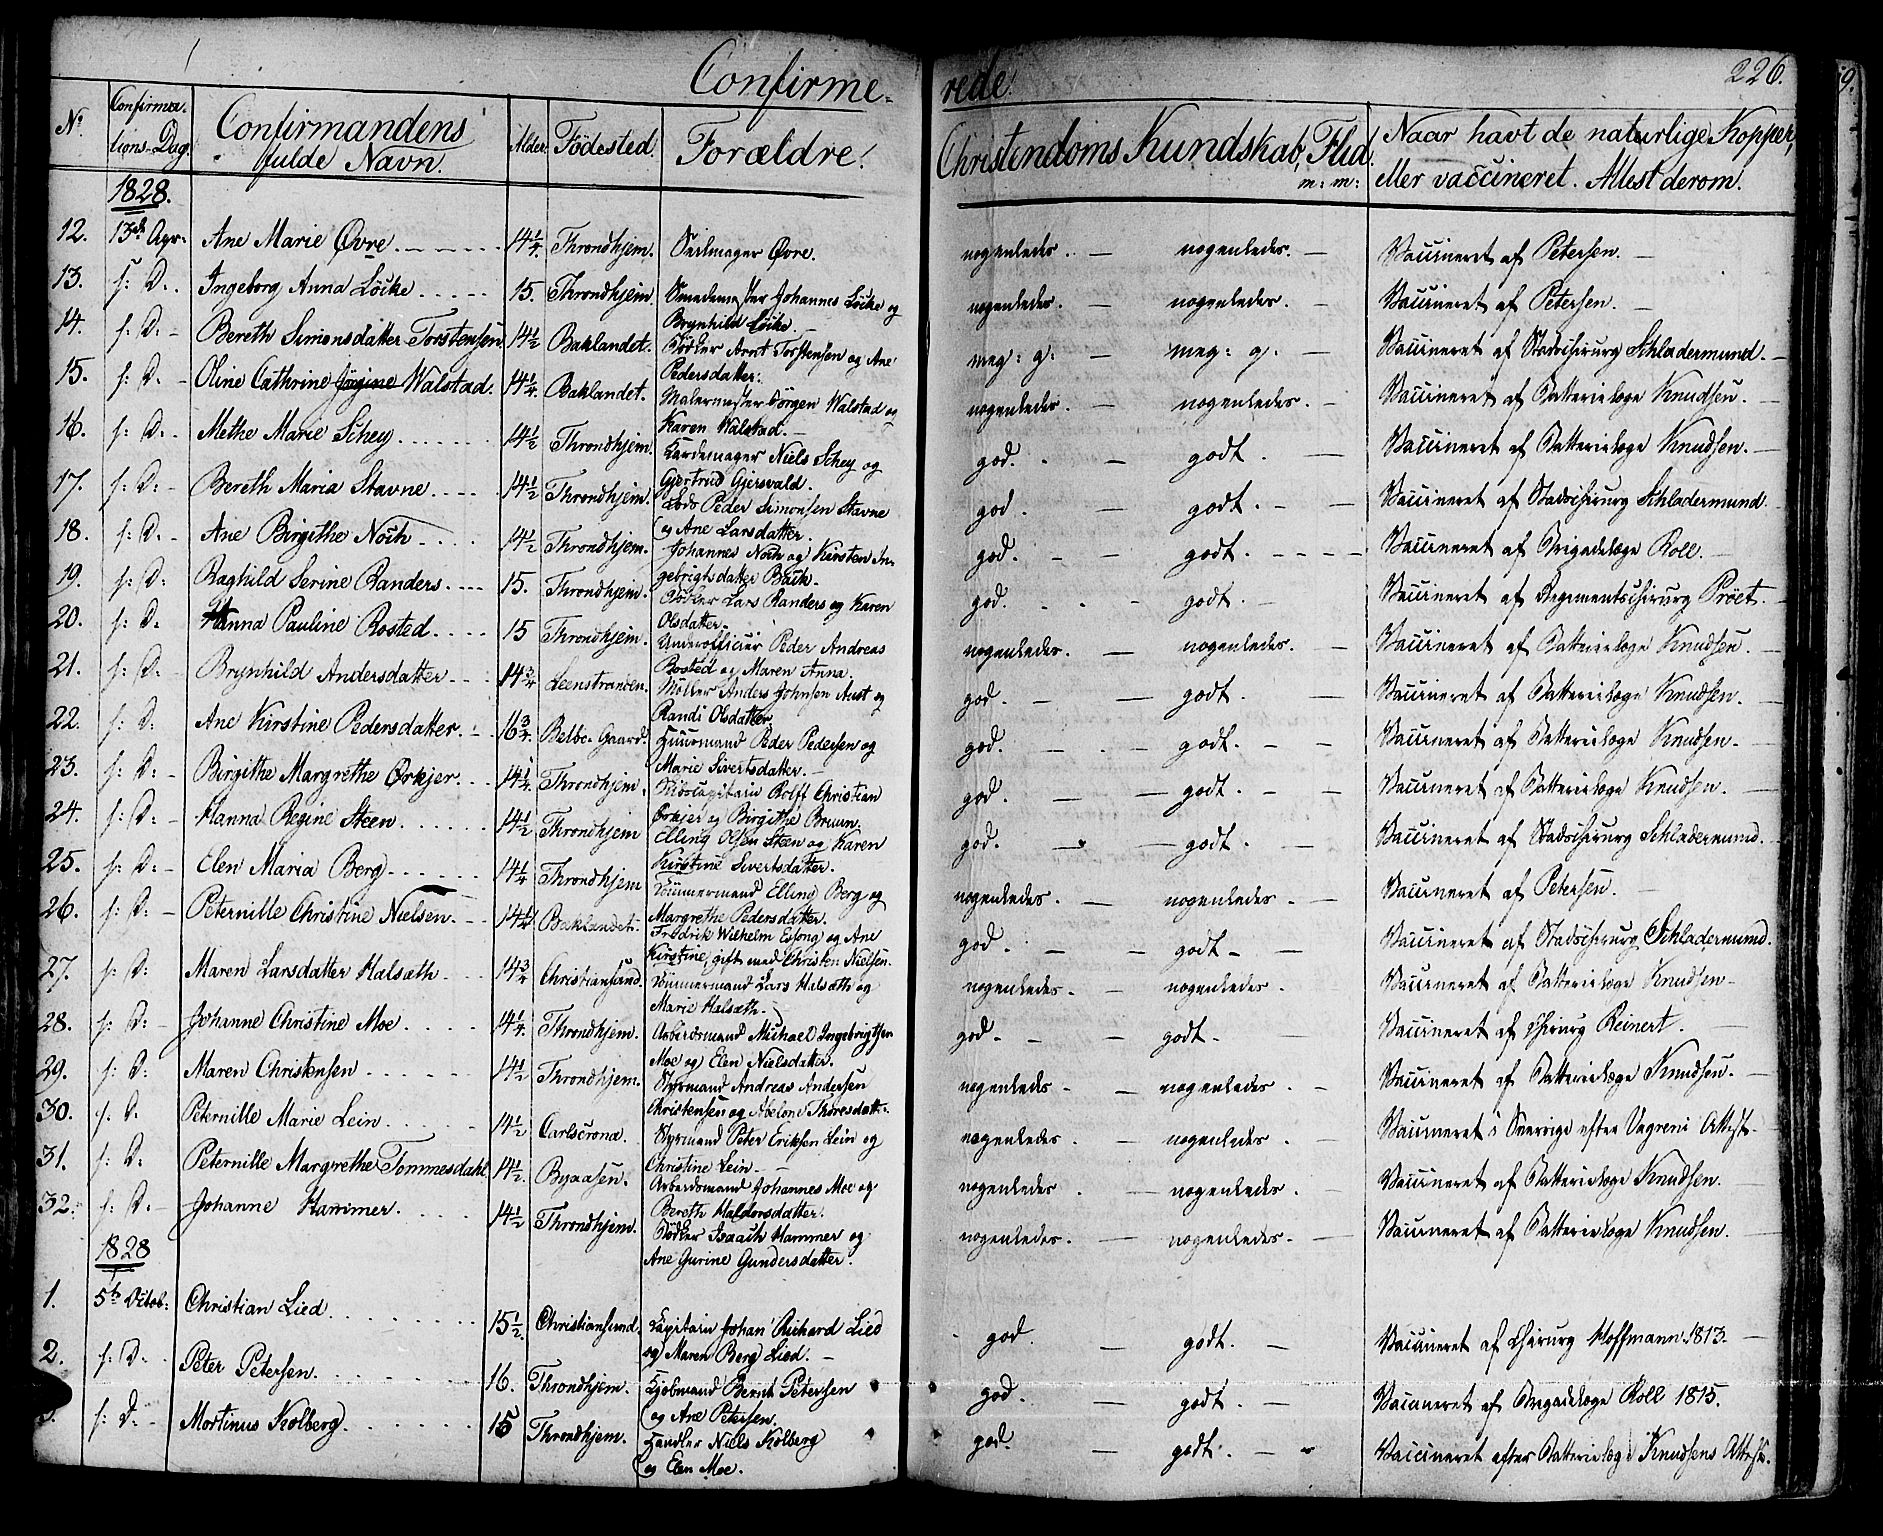 Confirmerede. 226.
No. Confirmations-Dag. Confirmandens fulde Navn. Alder. Fødested. Forældre. Christendoms Kundskab, Flid. m: m: Naar havt de naturlige Kopper, eller vaccineret. Attest derom.
1828.
12. 13de Apr: Ane Marie Øvre. 14 1/4. Throndhjem. Seilmager Øvre. nogenledes. — nogenledes. — Vaccineret af Petersen. —
13. s: D: Ingeborg Anna Löcke 15. Throndhjem. Johannes Löcke og Brynhild Löcke. nogenledes. — nogenledes. — Vaccineret af Petersen. —
14. s: D: Bereth Simonsdatter Torstensen 14 1/2 Baklandet. Bödker Arnt Torstensen og Ane Pedersdatter. meg: g: — meg: g. — Vaccineret af Stadschirurg Schladermund. —
15. s: D: Oline Cathrine Jörgine Walstad. 14 1/4. Baklandet. Malermester Jörgen Walstad og Karen Walstad. nogenledes. — nogenledes. — Vaccineret af Batterielæge Knudsen. —
16. s: D: Methe Marie Schey 14 1/2 Throndhjem. Niels Schey og Gjertrud Gjersvald. god. — godt. — Vaccineret af Batterielæge Knudsen. —
17. s: D: Bereth Maria Stavne 14 1/2 Throndhjem. Lods Peder Simonsen Stavne og Ane Larsdatter. god. — godt. — Vaccineret af Stadschirurg Schladermund.
18. s: D: Ane Birgithe Noch 14 1/2 Throndhjem. Johannes Noch og Kirsten Ingebrigtsdatter Bach. god. — godt. — Vaccineret af Brigadelæge Roll. —
19. s: D: Raghild Serine Randers 15. Throndhjem. Bödker Lars Randers og Karen Olsdatter. god. — godt. — Vaccineret af Regimentschirurg Pröet. —
20. s: D: Hanna Pauline Rosted 15 Throndhjem. Underofficier Peder Andreas Rosted og Maren Anna. nogenledes. — nogenledes. — Vaccineret af Batterielæge Knudsen
21. s: D: Brynhild Andersdatter 14 3/4 Leenstranden. Möller Anders Johnsen Aust og Randi Olsdatter. god. — godt. — Vaccineret af Batterielæge Knudsen. —
22. s: D: Ane Kirstine Pedersdatter. 16 3/4. Belbo. Gaard. Huusmand Peder Pedersen og Marie Sivertsdatter. god. — godt. — Vaccineret af Batterielæge Knudsen. —
23. s: D: Birgithe Margrethe Ørkjer 14 1/4. Throndhjem. Rolff Christian Ørkjer og Birgithe Bruun. god. — godt. — Vaccineret af Batterielæge Knudsen. —
24. s: D: Hanna Regine Steen 14 1/2 Throndhjem Elling Olsen Steen og Karen Kirstine Sivertsdatter. god. — godt. — Vaccineret af Stadschirurg Schladermund. —
25. s: D: Elen Maria Berg 14 1/4 Throndhjem Tömmermand Elling Berg og Margrethe Pedersdatter. nogenledes. — nogenledes. — Vaccineret af Petersen. —
26. s: D: Peternille Christine Nielsen. 14 1/4 Baklandet. Fredrik Wilhelm og Ane Kirstine, gift med Christen Nielsen. god. — godt — Vaccineret af Stadschirurg Schladermund.
27. s: D: Maren Larsdatter Halsæth 14 3/4 Christiansund. Tömmermand Lars Halsæth og Marie Halsæth. nogenledes. — nogenledes. Vaccineret af Batterielæge Knudsen —
28. s: D: Johanne Christine Moe 14 1/4. Throndhjem. Arbeidsmand Michael Ingebrigtsen Moe og Elen Nielsdatter. god. — godt. — Vaccineret af Chirurg Reinert. —
29. s: D: Maren Christensen 14 1/2 Throndhjem. Styrmand Andreas Andersen Christensen og Abelone Thoresdatter. nogenledes — nogenledes. — Vaccineret af Batterielæge Knudsen. —
30. s: D: Peternille Marie Lein 14 1/2 Carlscrona. Styrmand Peter Eriksen Lein og Christine Lein. nogenledes. — nogenledes. Vaccineret i Sverrige efter Attest.
31. s: D: Peternille Margrethe Tommesdahl 14 1/2. Byaasen. Arbeidsmand Johannes Moe og Bereth Haldorsdatter. nogenledes. — nogenledes. — Vaccineret af Batterielæge Knudsen. —
32. s: D: Johanne Hammer. 14 1/2 Throndhjem. Bödker Isaach Hammer og Ane Gurine Gundersdatter. nogenledes. — nogenledes. — Vaccineret af Batterielæge Knudsen. —
1828
1. 5te Octob: Christian Lied 15 1/2. Christiansund. Capitain Johan Richard Lied og Maren Berg Lied. — god. — godt. — Vaccineret af Chirurg Hoffmann 1813. —
2. s: D: Peter Petersen. 16. Throndhjem. Kjöbmand Bernt Petersen og Ane Petersen. god. — godt. — Vaccineret af Brigadelæge Roll 1815.
s: D: Mortinus Kolberg. 15 Throndhjem. Handler Niels Kolberg og Elen Moe. god. — godt. — Vaccineret efter Batterielæge Knudsens Attest.